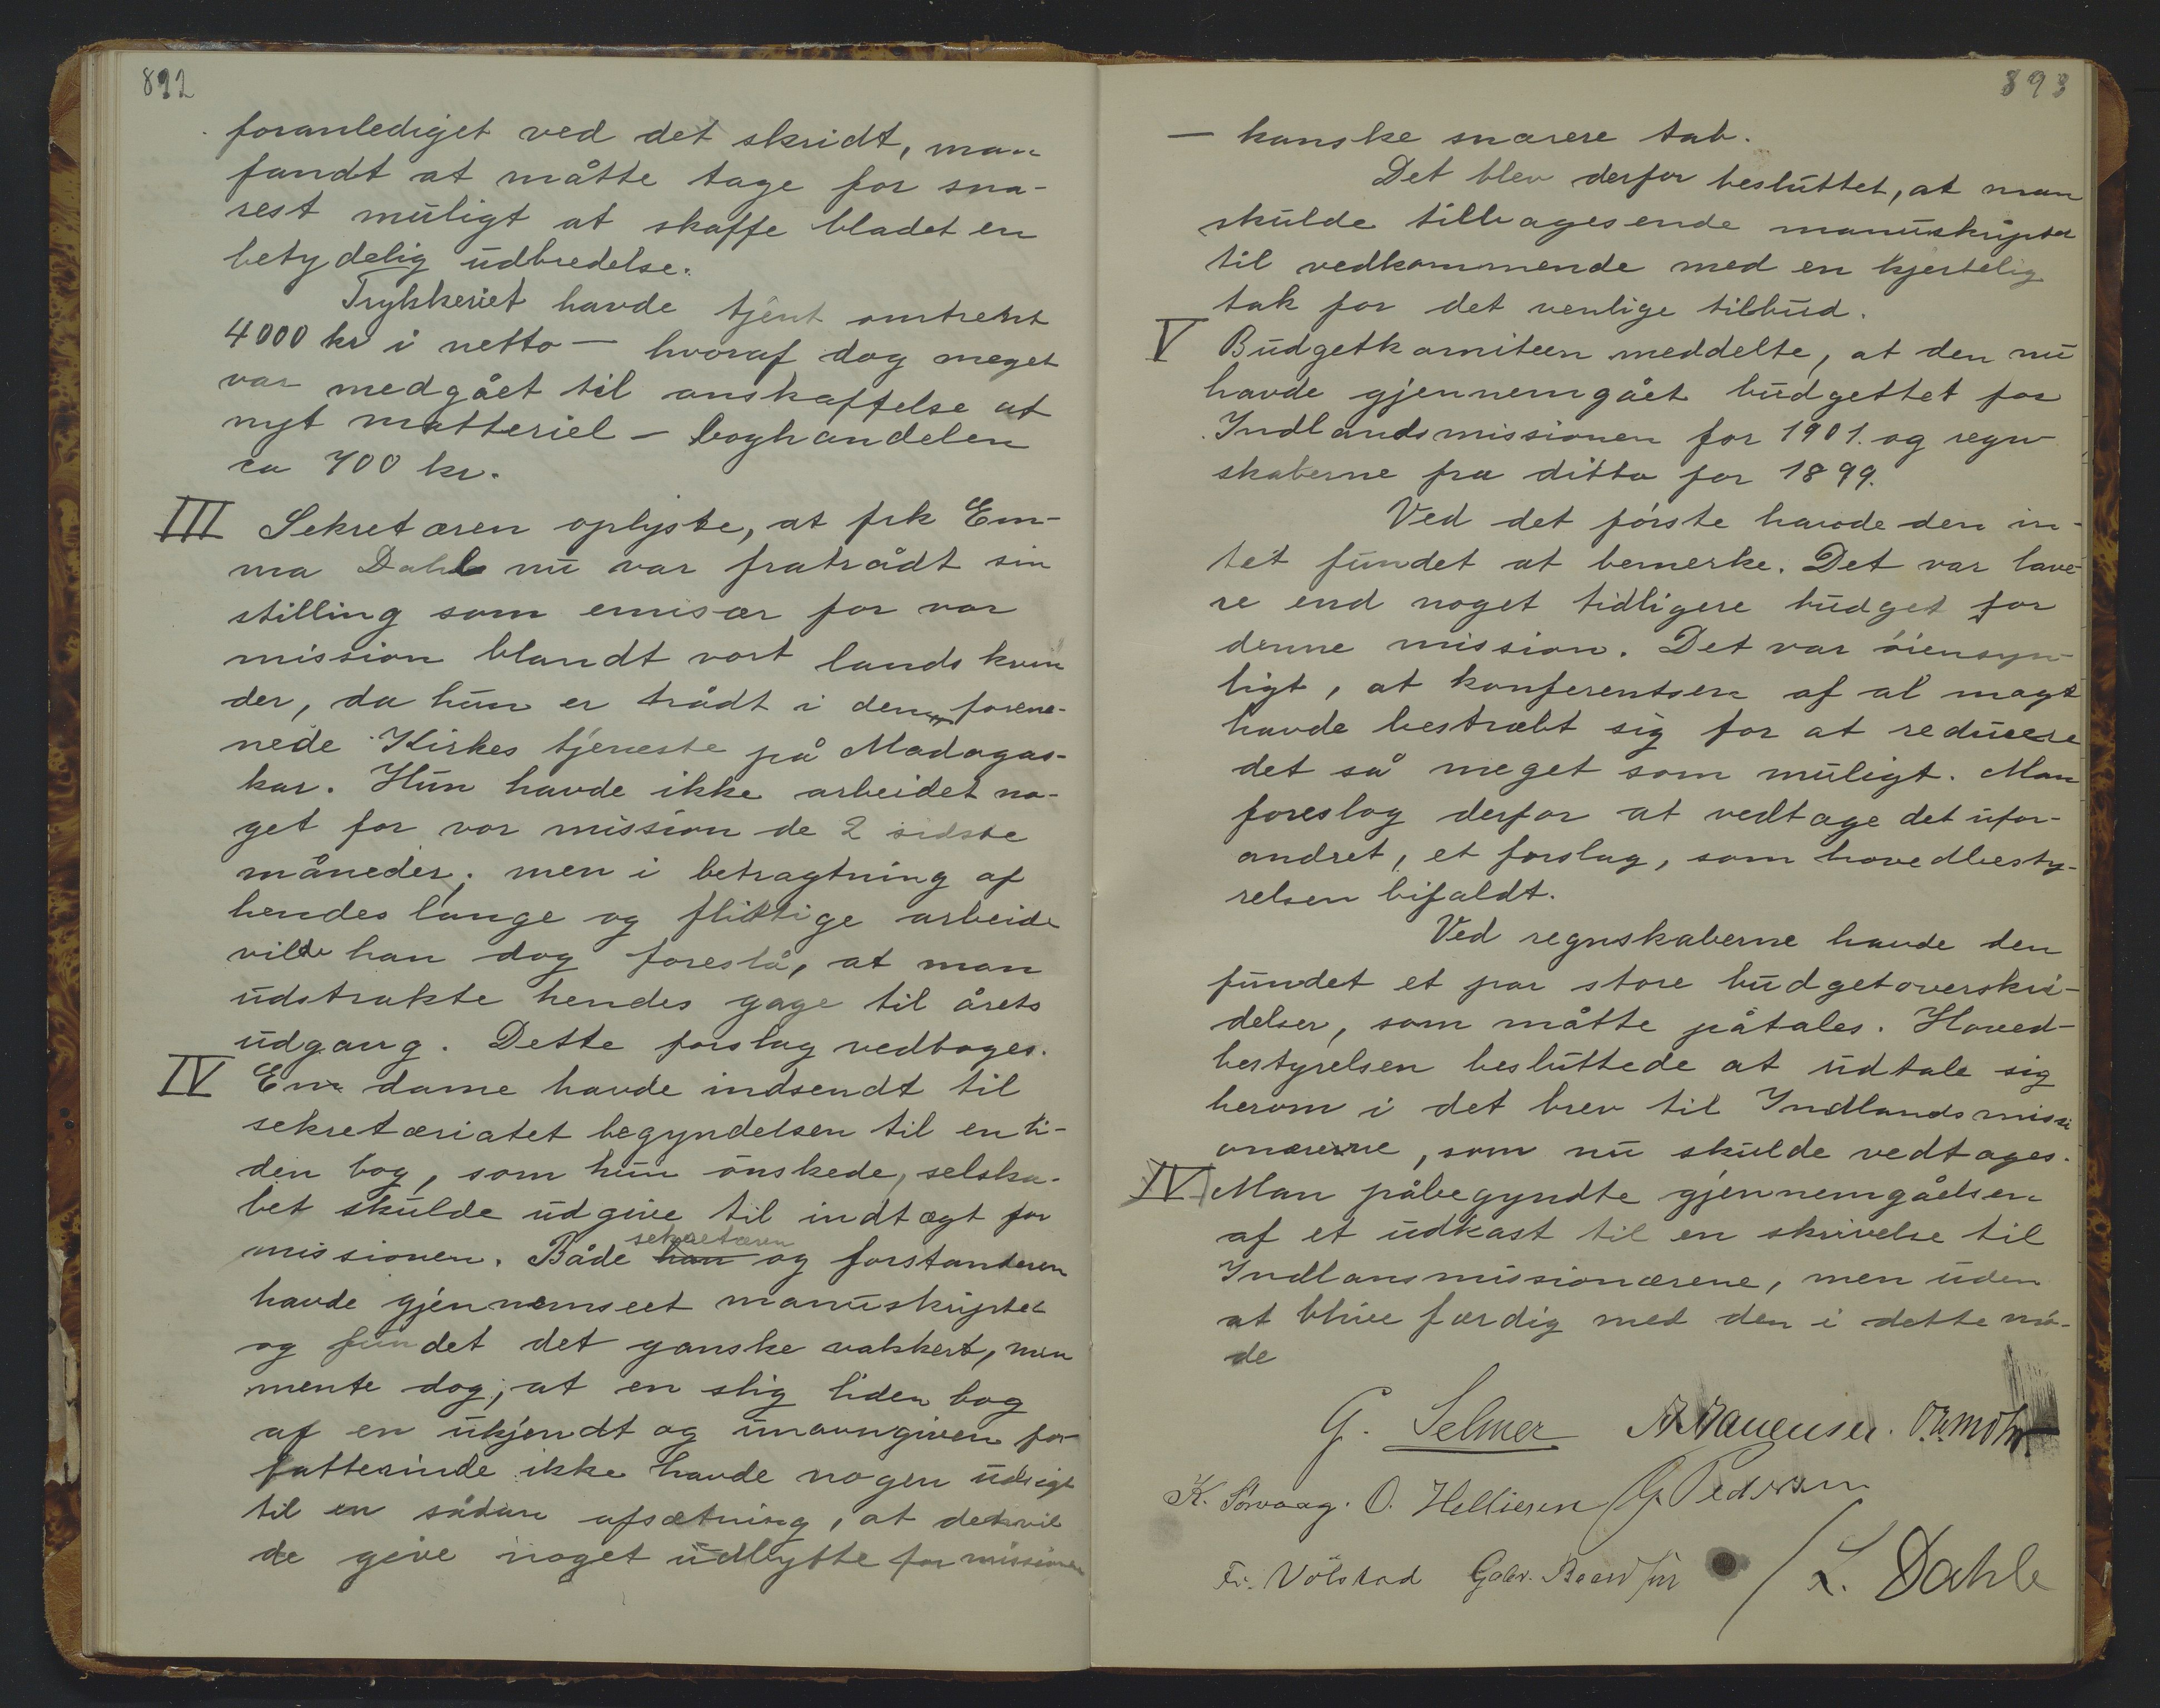 892
foranlediget ved det skridt, man
fandt at måtte tage for sna-
rest muligt at skaffe bladet en
betydelig udbredelse.
Trykkeriet havde tjent omtrent
4000 kr i netto — hvoraf dog meget
var medgået til anskaffelse af
nyt matteriel — boghandelen
ca 700 kr.
III Sekretæren oplyste, at frk Em-
ma Dahl nu var fratrådt sin
stilling som emisær for vor
mission blandt vort lands kvin
der, da hun er trådt i den forene-
nede Kirkes tjeneste på Madagas-
kar. Hun havde ikke arbeidet no-
get for vor mission de 2 sidste
måneder; men i betragtning af
hendes lange og flittige arbeide
vilde han dog foreslå, at man
udstrakte hendes gage til årets
udgang. Dette forslag vedtoges.
IV En dame havde indsendt til
sekretæriatet begyndelsen til en li-
den bog, som hun önskede, selska-
bet skulde udgive til indtægt for
missionen. Både han sekretæren og forstanderen
havde gjennemseet manuskriptet
og fundet det ganske vakkert, men
mente dog, at en slig liden bog
af en ukjendt og unavngiven for-
fatterinde ikke havde nogen udsigt
til en sådan afsætning, at det vil
de give noget udbytte for missionen
893
— kanske snarere tab.
Det blev derfor besluttet, at man
skulde tilbagesende manuskriptet
til vedkommende med en hjertelig
tak for det venlige tilbud.
V Budgetkomiteen meddelte, at den nu
havde gjennemgået budgettet for
Indlandsmissionen for 1901. og regn-
skaberne fra ditto for 1899.
Ved det förste havde den in-
tet fundet at bemerke. Det var lave-
re end noget tidligere budget for
denne mission. Det var öiensyn-
ligt, at konferentsen af al magt
havde bestræbt sig for at reducere
det så meget som muligt. Man
foreslog derfor at vedtage det ufor-
andret, et forslag, som hovedbesty-
relsen bifaldt.
Ved regnskaberne havde den
fundet et par store budgetoverskri-
delser, som måtte påtales. Hoved-
bestyrelsen besluttede at udtale sig
herom i det brev til Indlandsmissi
onærerne, som nu skulde vedtages.
IV Man påbegyndte gjennemgåelsen
af et udkast til en skrivelse til
Indlansmissionærene, men uden
at blive færdig med den i dette mö-
de
G. Selmer
K. Sørvaag. O. Helliesen G. Pedersen
Fr. Völstad Gabr. L. Dahle